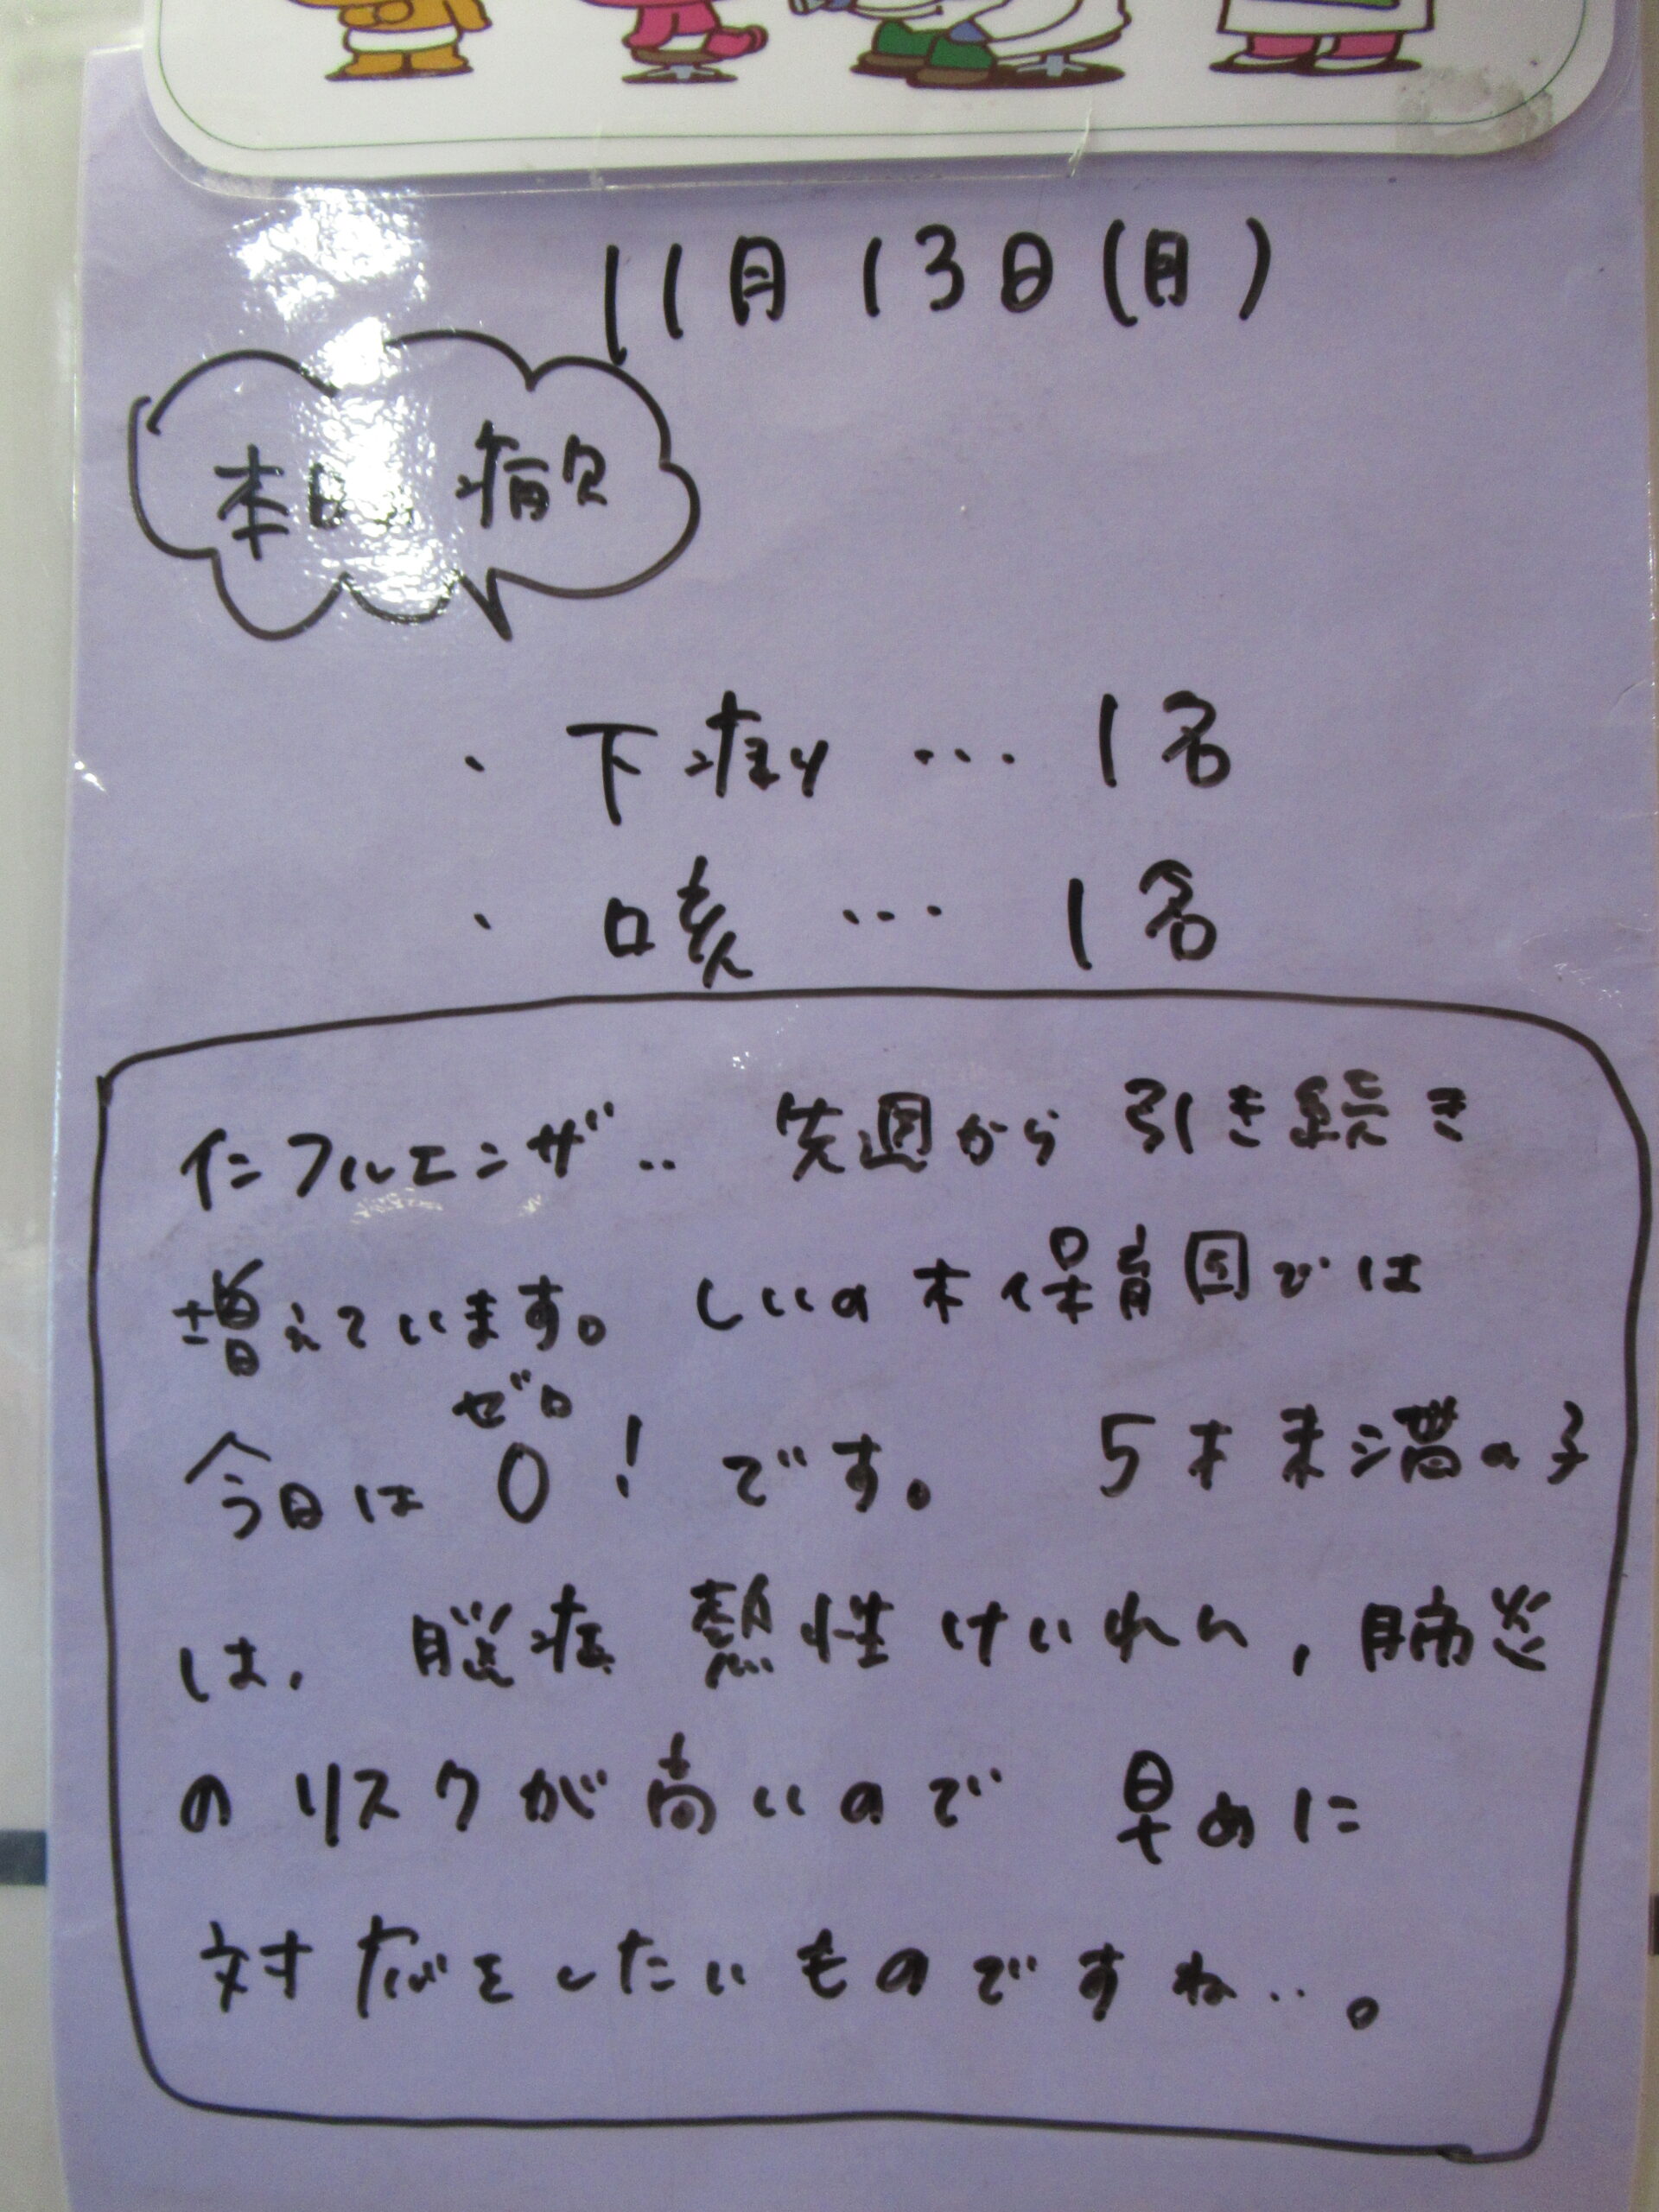 11月13日(月)
本日 病欠
・下痢 … 1名
・咳 … 1名
インフルエンザ‥ 先週から引き続き
増えています。しいの木保育園では
ゼロ
今日は 0! です。 5才未満の子
は、 脳症 熱性けいれん, 肺炎
のリスクが高いので 早めに
対応をしたいものですね‥。